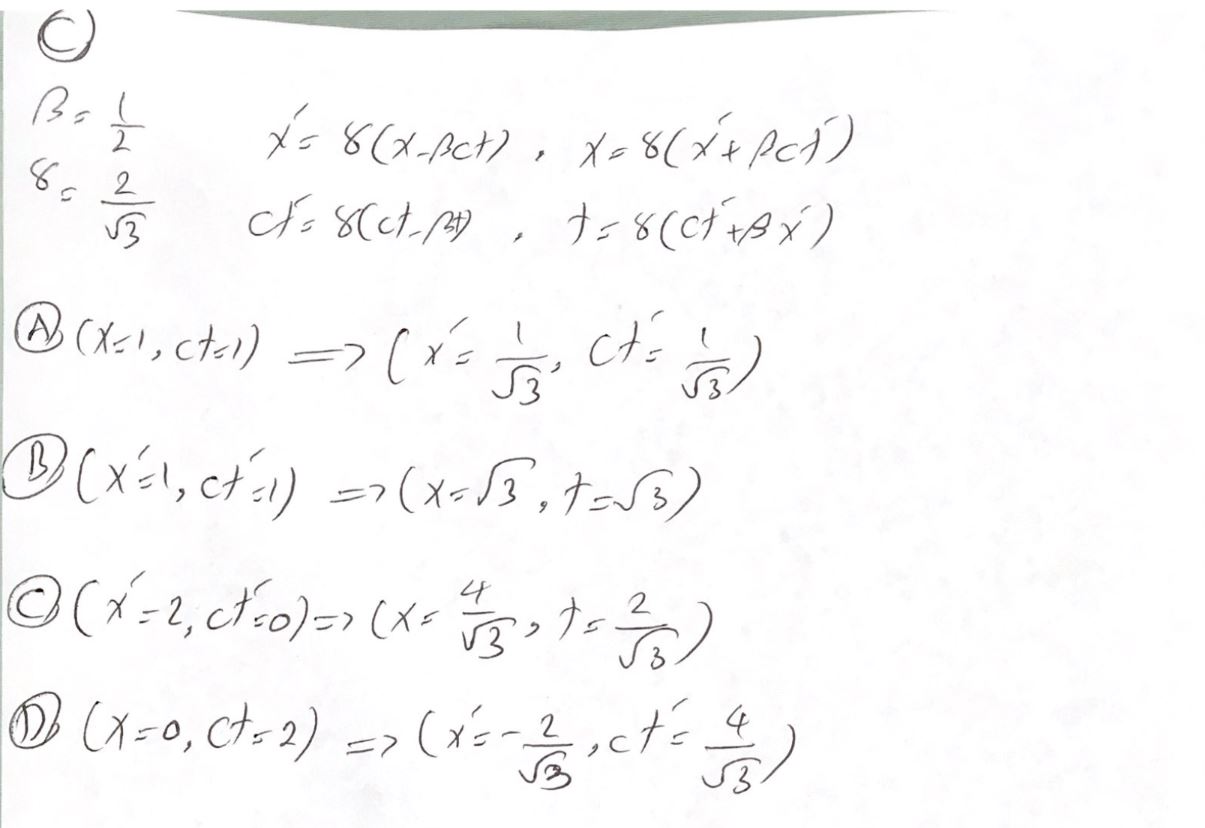 C)
β = 1/2    x' = γ(x-βct) , x = γ(x'+βct')
γ = 2/√3    ct' = γ(ct-βt) , t = γ(ct'+βx')
Ⓐ (x=1, ct=1) => (x' = 1/√3, ct' = 1/√3)
Ⓑ (x'=1, ct'=1) => (x=√3, t=√3)
Ⓒ (x'=2, ct'=0) => (x = 4/√3, t = 2/√3)
Ⓓ (x=0, ct=2) => (x' = -2/√3, ct' = 4/√3)